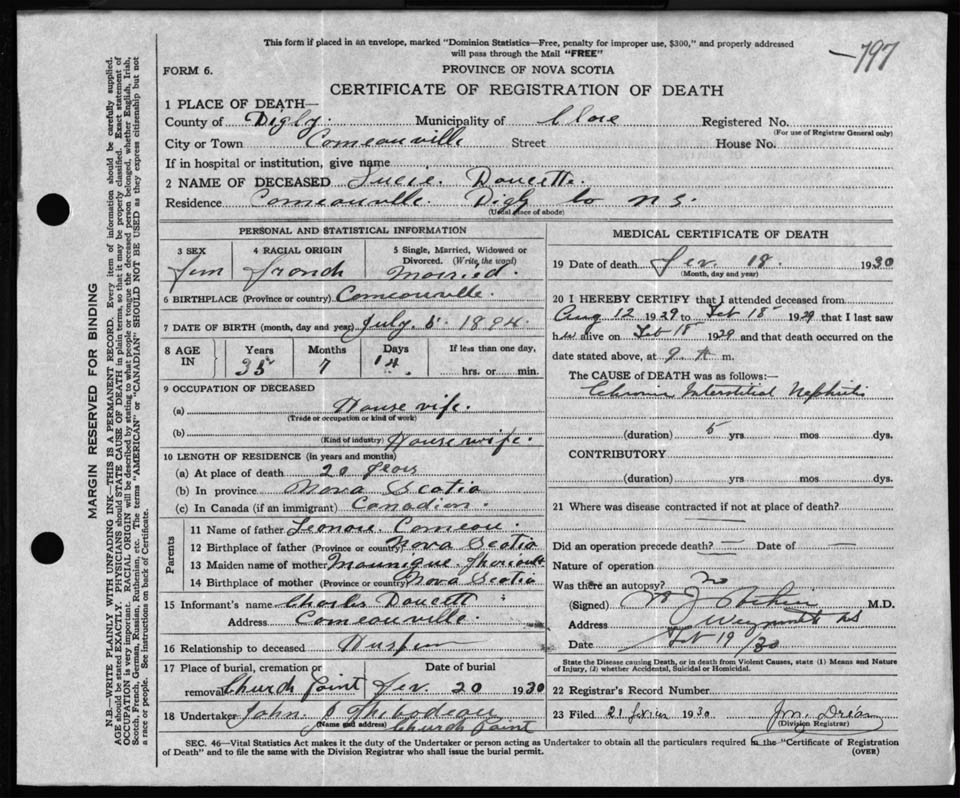 This form if placed in an envelope, marked "Dominion Statistics—Free, penalty for improper use, $300," and properly addressed
will pass through the Mail "FREE"
—797
FORM 6.
PROVINCE OF NOVA SCOTIA
CERTIFICATE OF REGISTRATION OF DEATH
1 PLACE OF DEATH—
County of Digby. Municipality of Clare Registered No.
(For use of Registrar General only)
City or Town Comeauville Street House No.
If in hospital or institution, give name
2 NAME OF DECEASED Lucie. Doucette.
Residence Comeauville. Digby Co N S.
(Usual place of abode)
PERSONAL AND STATISTICAL INFORMATION
3 SEX
Fem
4 RACIAL ORIGIN
French
5 Single, Married, Widowed or
Divorced. (Write the word)
Married.
6 BIRTHPLACE (Province or country) Comeauville.
7 DATE OF BIRTH (month, day and year) July. 5 1894.
8 AGE IN
Years Months Days If less than one day,
35 7 14. hrs. or min.
9 OCCUPATION OF DECEASED
(a) House wife.
(Trade or occupation or kind of work)
(b) House wife.
(Kind of industry)
10 LENGTH OF RESIDENCE (in years and months)
(a) At place of death 20 years
(b) In province Nova Scotia
(c) In Canada (if an immigrant) Canadian.
Parents
11 Name of father Comeau.
12 Birthplace of father (Province or country) Nova Scotia
13 Maiden name of mother Theriault
14 Birthplace of mother (Province or country) Nova Scotia
15 Informant's name Charles Doucett
Address Comeauville.
16 Relationship to deceased
17 Place of burial, cremation or
removal Church Point
Date of burial
Fev. 20 1930
18 Undertaker John Thibodeau
(Name and address) Church Point
MEDICAL CERTIFICATE OF DEATH
19 Date of death Fev. 18. 1930
(Month, day and year)
20 I HEREBY CERTIFY that I attended deceased from
Aug 12 1929 to Feb 18 1929 that I last saw
her alive on Feb 18 1929 and that death occurred on the
date stated above, at 9 A m.
The CAUSE of DEATH was as follows:—
Chronic Interstitial Nephritis
(duration) 5 yrs mos dys.
CONTRIBUTORY
(duration) yrs mos dys.
21 Where was disease contracted if not at place of death?
Did an operation precede death? — Date of
Nature of operation
Was there an autopsy? No
(Signed) M.D.
Address Weymouth NS
Date Feb 19/30
State the Disease causing Death, or in death from Violent Causes, state (1) Means and Nature
of Injury, (2) whether Accidental, Suicidal or Homicidal.
22 Registrar's Record Number
23 Filed 21 1930
(Division Registrar)
SEC. 46—Vital Statistics Act makes it the duty of the Undertaker or person acting as Undertaker to obtain all the particulars required in the "Certificate of Registration
of Death" and to file the same with the Division Registrar who shall issue the burial permit.
(OVER)
MARGIN RESERVED FOR BINDING
N.B.—WRITE PLAINLY WITH UNFADING INK—THIS IS A PERMANENT RECORD. Every item of information should be carefully supplied.
AGE should be stated EXACTLY. PHYSICIANS should STATE CAUSE OF DEATH in plain terms, so that it may be properly classified. Exact statement of
OCCUPATION is very important. RACIAL ORIGIN will be described by stating to what people or tongue the deceased person belonged, whether English, Irish,
Scotch, French, German, Russian, Ruthenian, etc. The terms "AMERICAN" or "CANADIAN" SHOULD NOT BE USED as they express citizenship but not
a race or people. See instructions on back of Certificate.